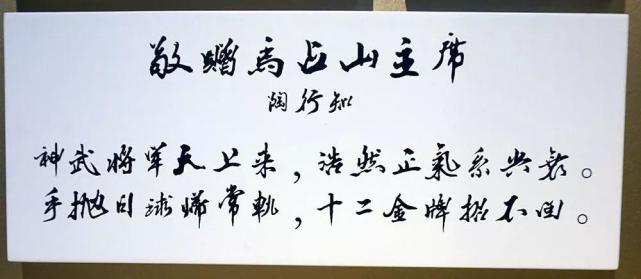 敬赠马占山主席
陶行知
神武将军天上来，浩然正气系兴衰。
手抛日球归常轨，十二金牌招不回。